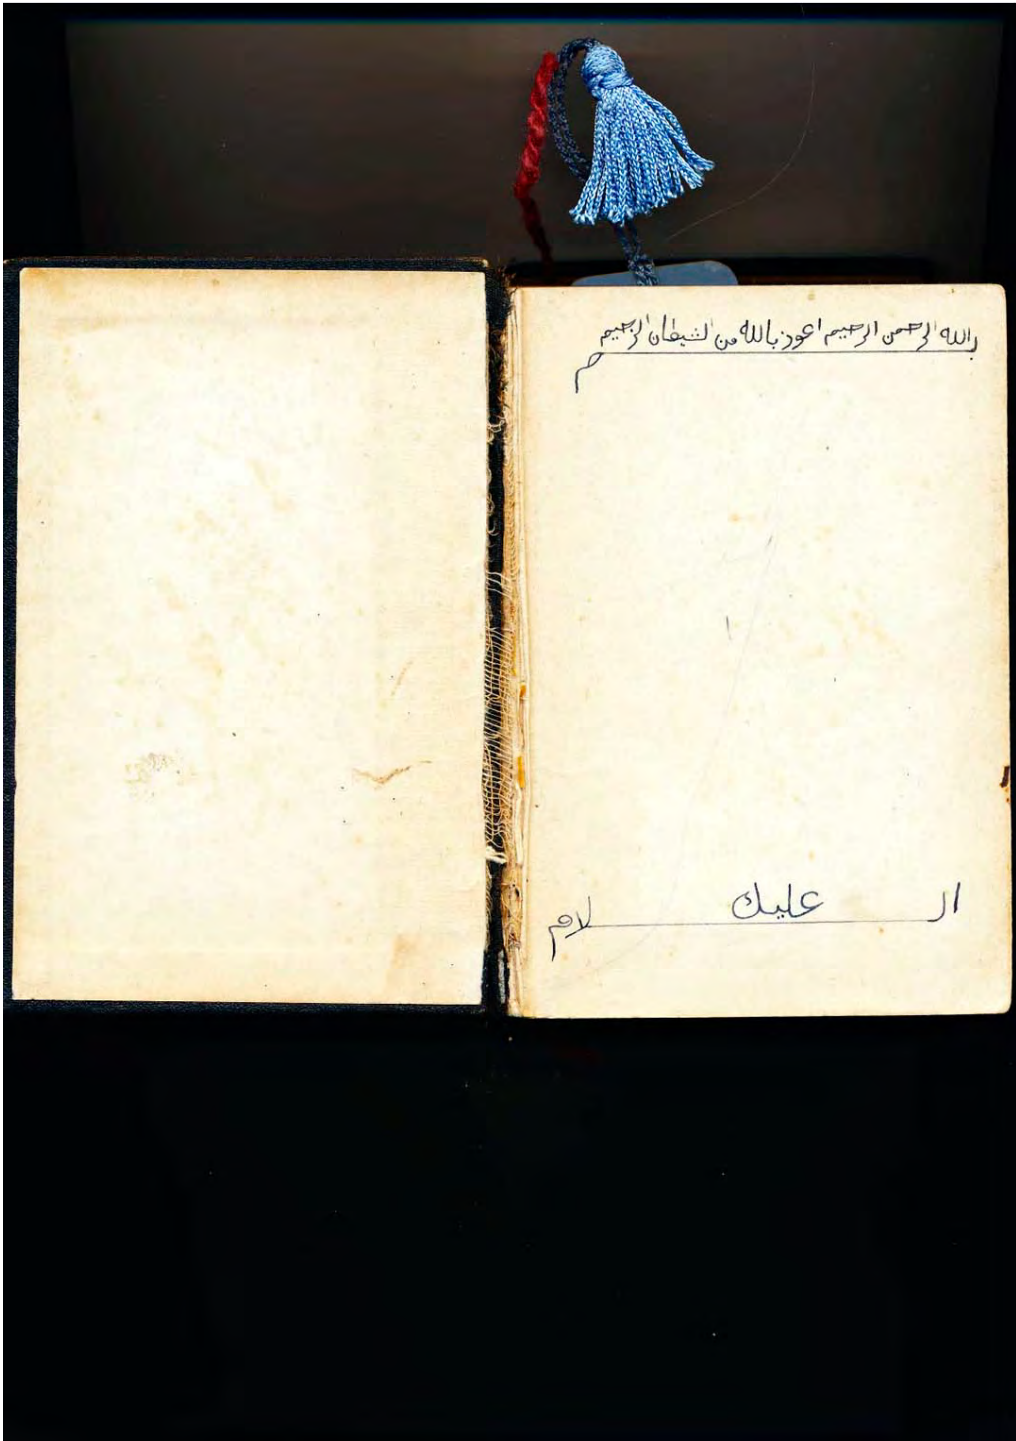 بسم الله الرحمن الرحيم اعوذ بالله من الشيطان الرجيم
السلام عليك